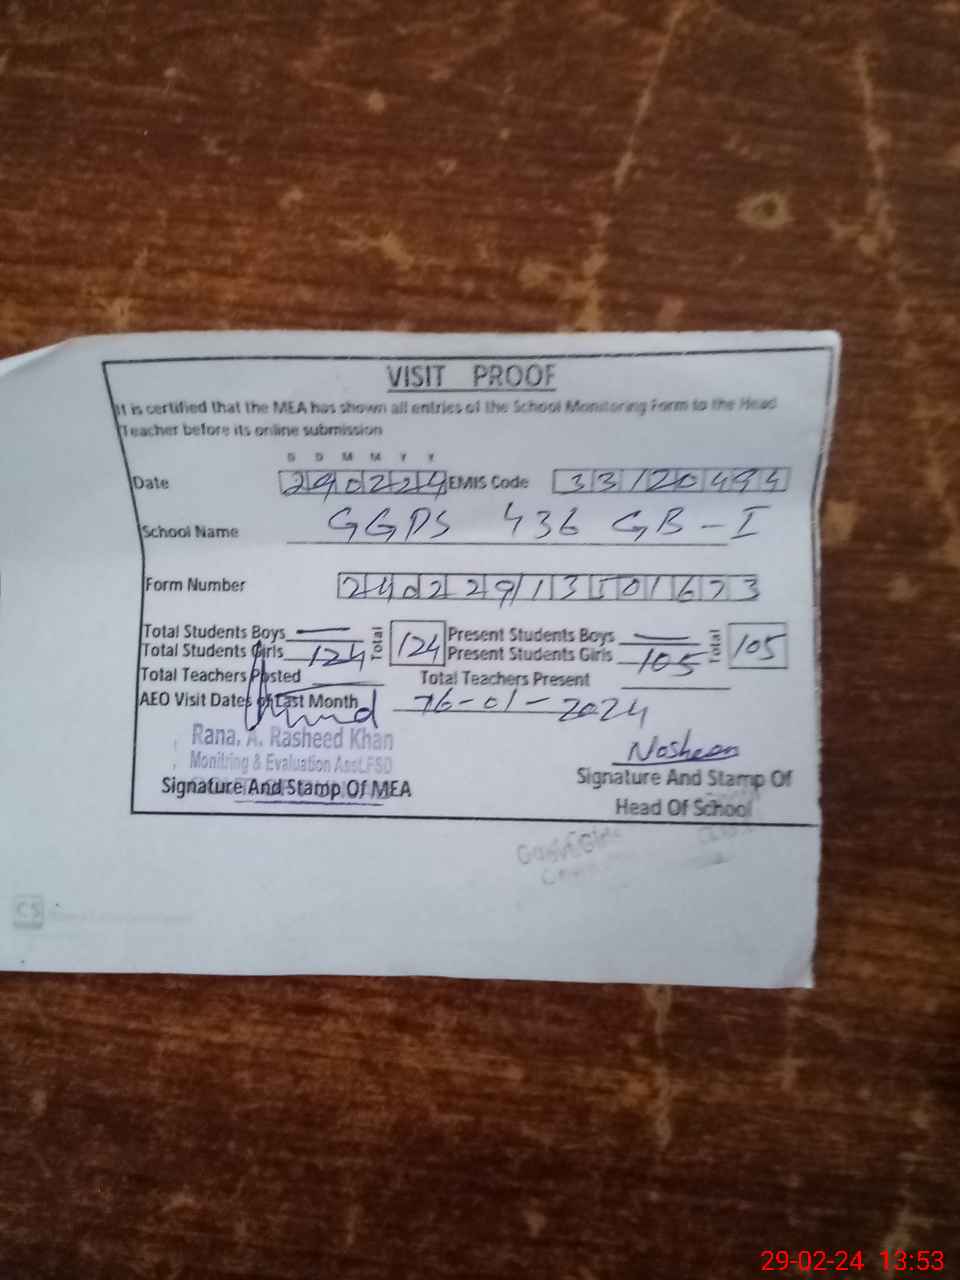 VISIT PROOF
It is certified that the MEA has shown all entries of the School Monitoring Form to the Head
Teacher before its online submission
D D M M Y Y
Date 290224 EMIS Code 33120494
School Name GGPS 436 GB-I
Form Number
Total Students Boys — Total 124 Present Students Boys — Total 105
Total Students Girls 124 Present Students Girls 105
Total Teachers Posted Total Teachers Present
AEO Visit Dates of Last Month 16-01-2024
Rana. A. Rasheed Khan
Monitring & Evaluation Asst.FSD
Nosheen
Signature And Stamp Of MEA Signature And Stamp Of
Head Of School
CS
29-02-24 13:53